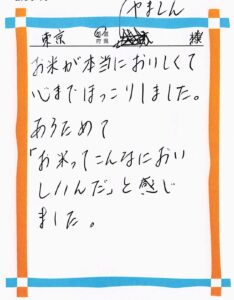 やましん
東京 都道府県 様
お米が本当においしくて
心までほっこりしました。
あらためて
「お米ってこんなにおい
しいんだ」と感じ
ました。